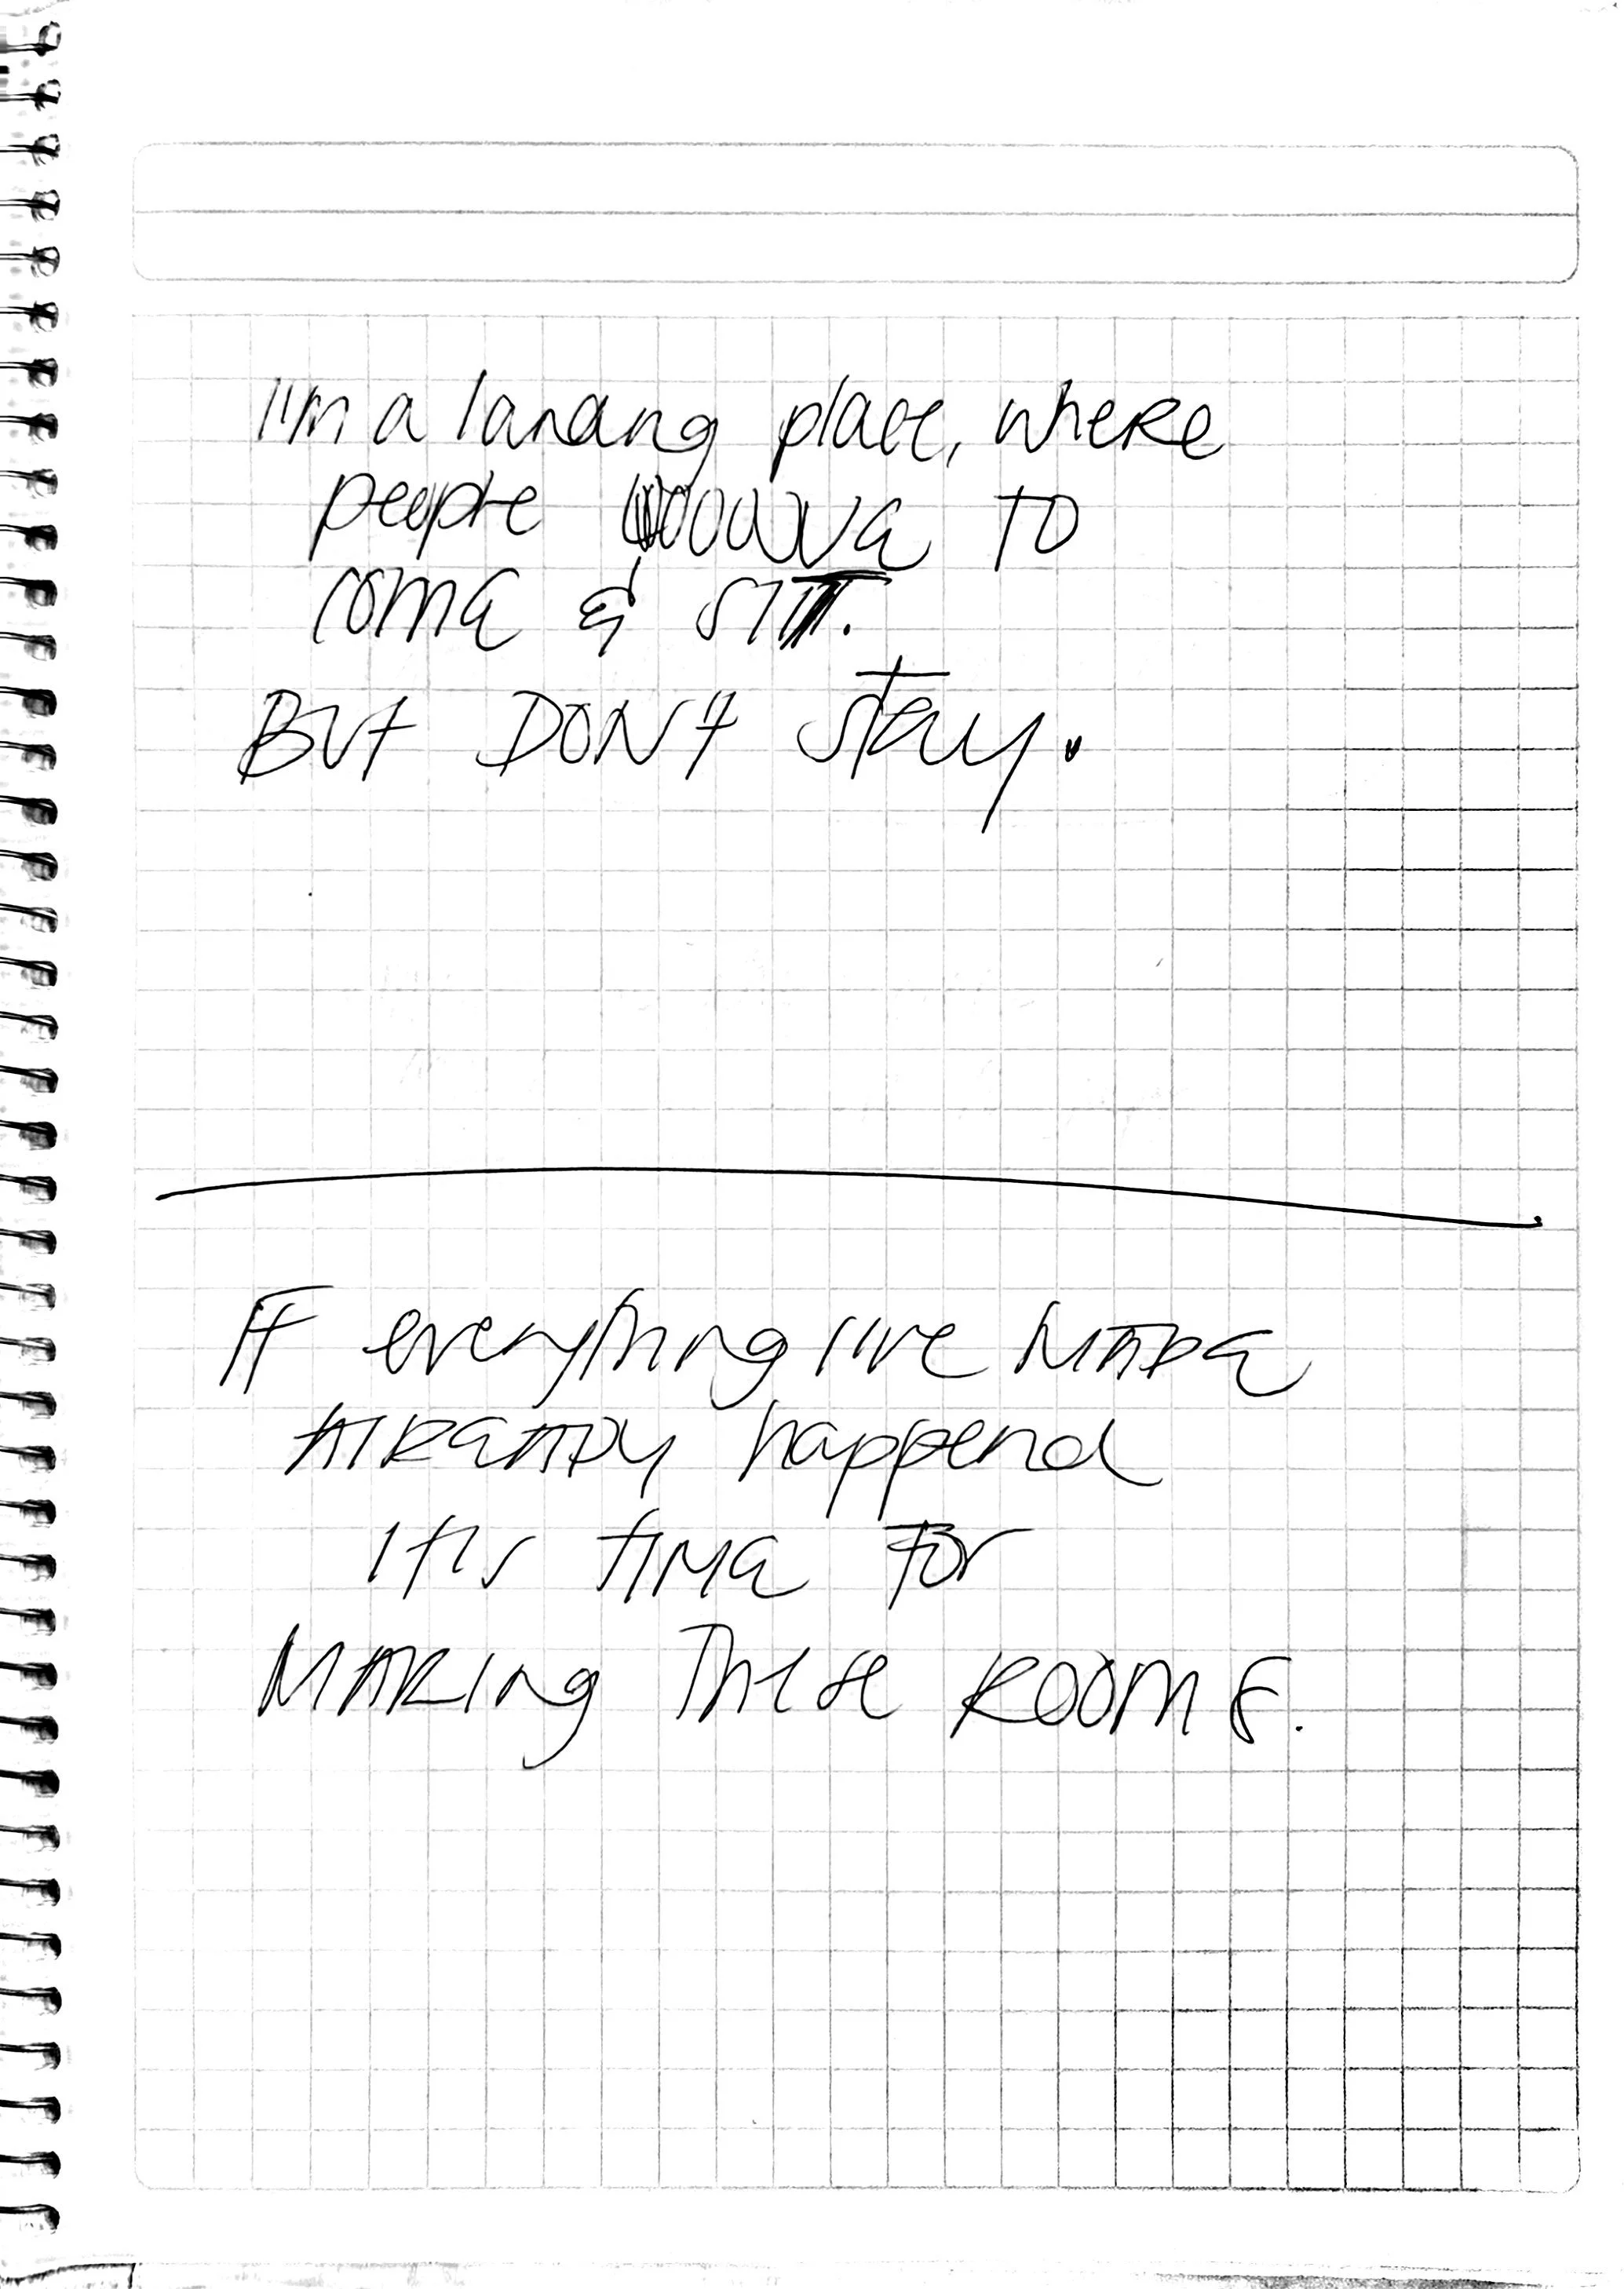 I'm a landing place, where
people to
come & sit.
But DON't stay.
If everything I've made
already happend
It's time for
Making these rooms.